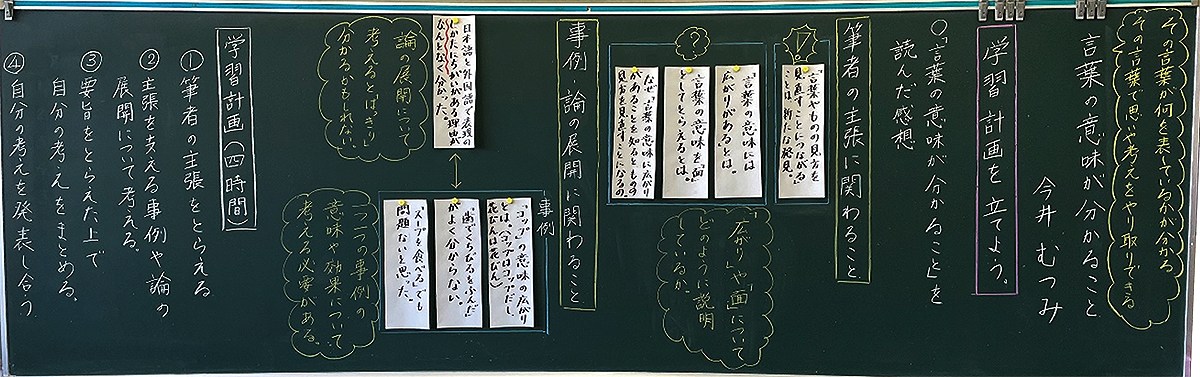 その言葉が何を表しているかが分かる
その言葉で思いや考えをやり取りできる
言葉の意味が分かること
今井 むつみ
学習計画を立てよう。
○「言葉の意味が分かること」を
読んだ感想
筆者の主張に関わること
!
言葉やものの見方を
見直すことにつながる」
ことは、新たな発見。
?
「言葉の意味には
広がりがある」とは。
「言葉の意味を「面」
としてとらえる」とは。
なぜ「言葉の意味に広がり
があることを知ると、ものの
見方を見直すことになるの。
「広がり」や「面」について
どのように説明
しているか。
事例・論の展開に関わること
事例
「コップ」の意味の広がり
とは。(コップはコップだし、
花びんは花びん)
「歯でくちびるをふんだ」
がよく分からない。
「スープを食べる」でも
問題ないと思った。
一つ一つの事例の
意味や効果について
考える必要がある。
日本語と外国語で表現の
しかたにちがいがある理由が
なんとなく分かった。
論の展開について
考えると、はっきり
分かるかもしれない。
学習計画(四時間)
① 筆者の主張をとらえる
② 主張を支える事例や論の
展開について考える。
③ 要旨をとらえた上で
自分の考えをまとめる。
④ 自分の考えを発表し合う